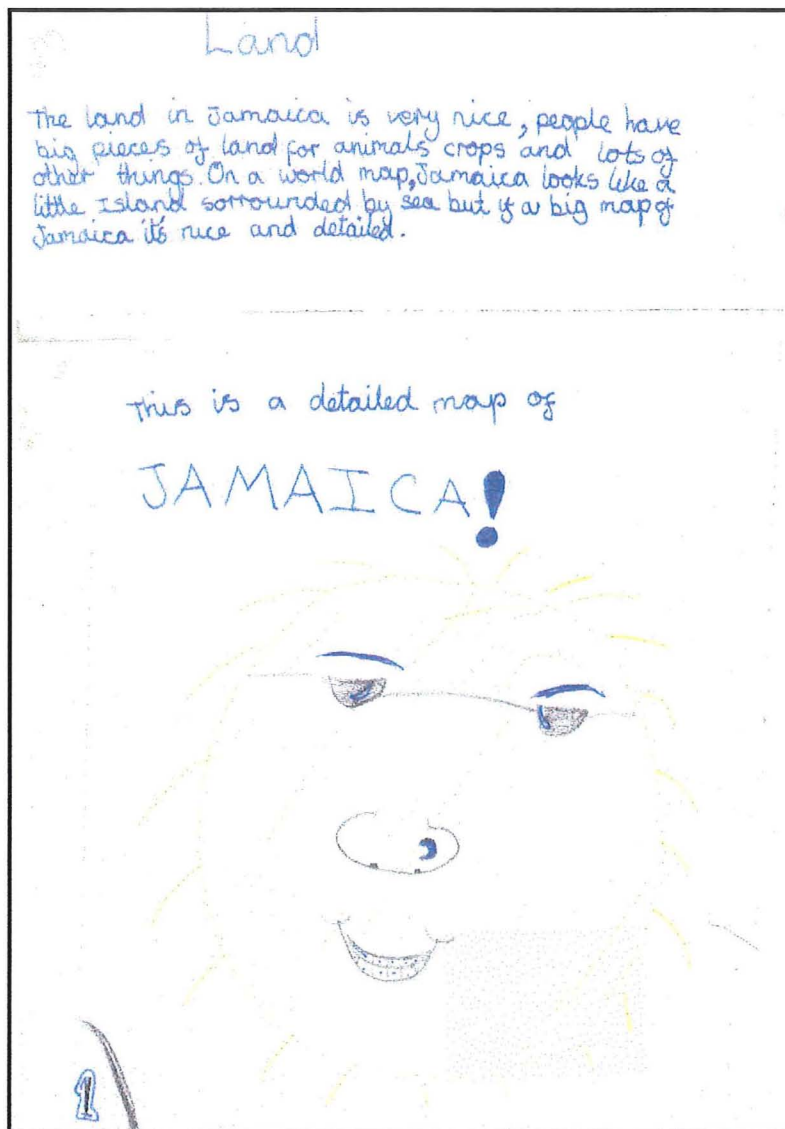 Land
The land in Jamaica is very nice, people have
big pieces of land for animals crops and lots of
other things. On a world map, Jamaica looks like a
little Island sorrounded by sea but if a big map of
Jamaica it's nice and detailed.
This is a detailed map of
JAMAICA!
1